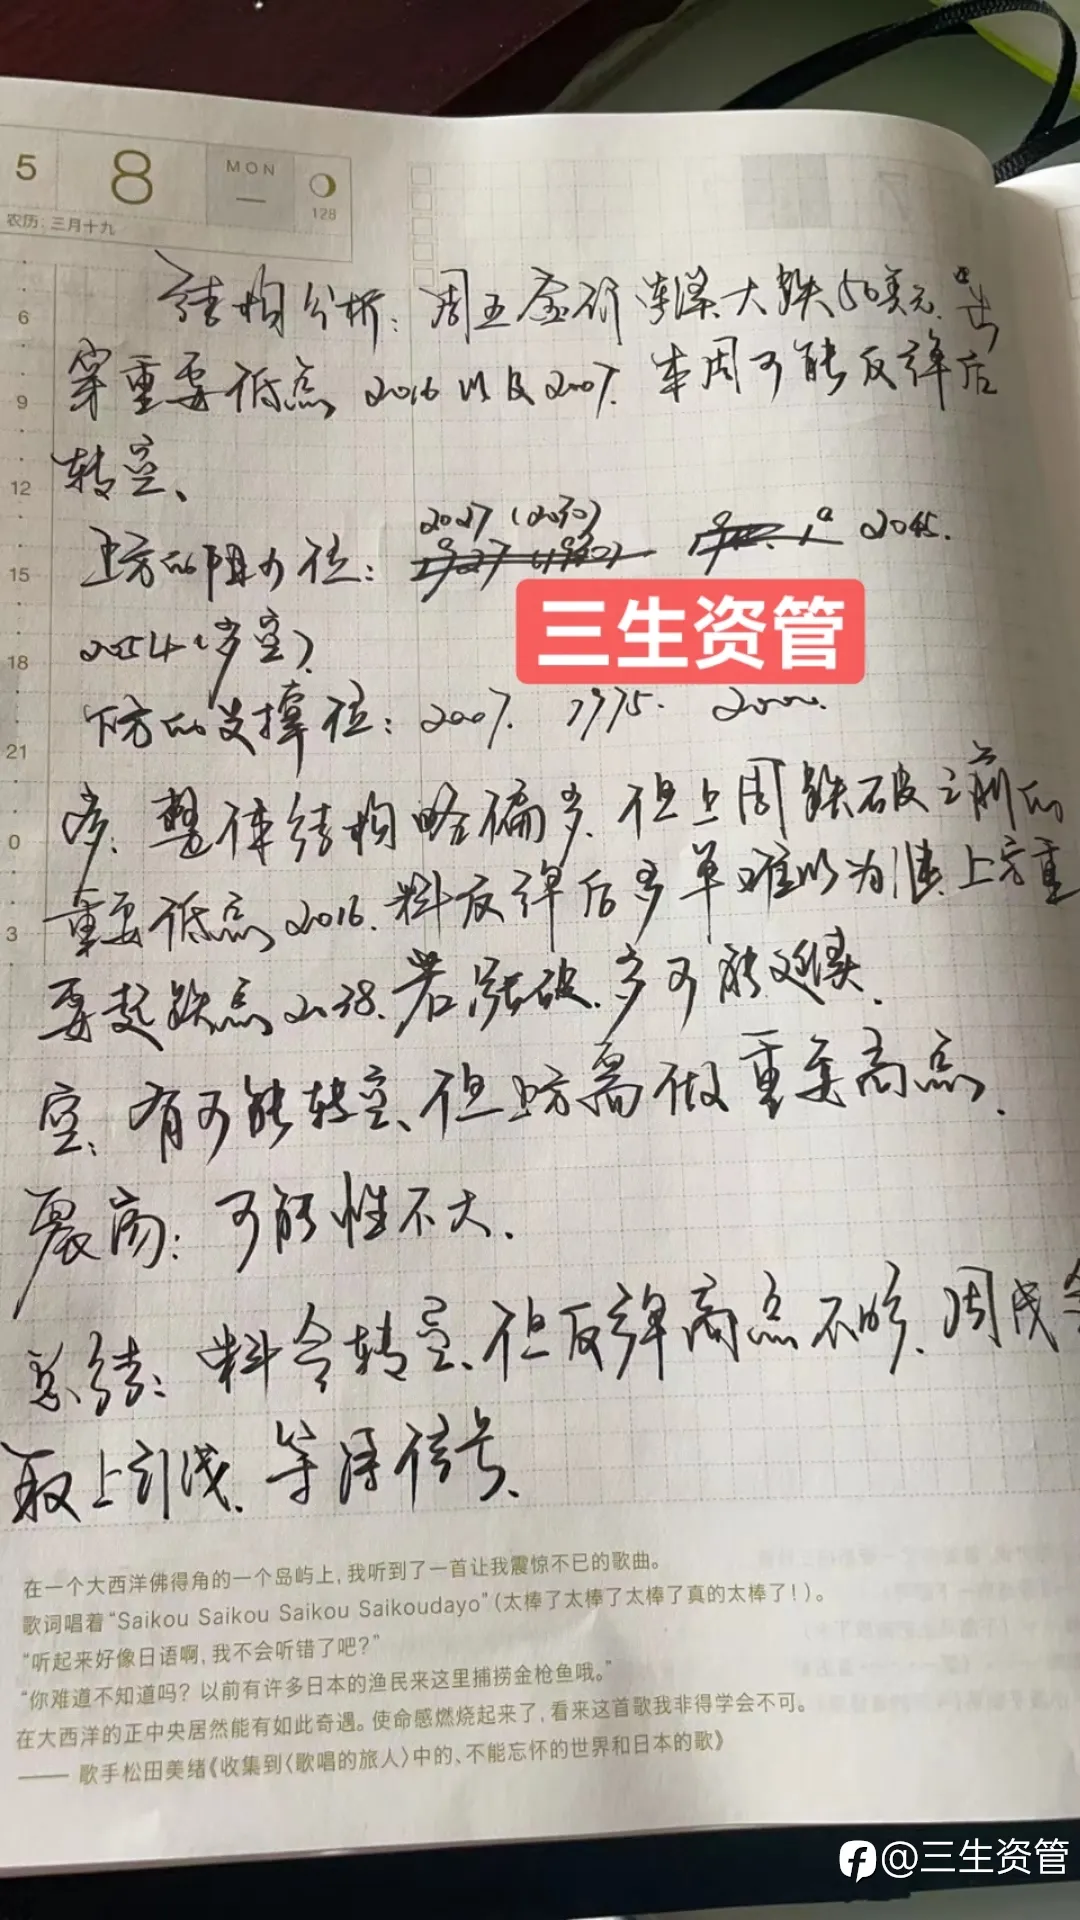 5 8 MON 一 128
农历：三月十九
结构分析：周五金价 大跌50美元.
穿重要低点 2016以及2007. 本周可能反弹后
转空、
上方的阻力位：2027（2030） 2045.
2054（多空）
下方的支撑位：2007. 1975. 2000.
多：整体结构略偏多、但上周跌破之前的
重要低点2016.料反弹后多单难以为继.上方重
要起跌点2038.若涨破.多可能延续.
空：有可能转空、但上方需做重要高点.
震荡：可能性不大.
总结：料会转空、但反弹高点不够.周线
取上引线.等待信号.
6
9
12
15
18
21
0
3
三生资管
在一个大西洋佛得角的一个岛屿上，我听到了一首让我震惊不已的歌曲。
歌词唱着“Saikou Saikou Saikou Saikoudayo”（太棒了太棒了太棒了真的太棒了！）。
“听起来好像日语啊，我不会听错了吧？”
“你难道不知道吗？以前有许多日本的渔民来这里捕捞金枪鱼哦。”
在大西洋的正中央居然能有如此奇遇。使命感燃烧起来了，看来这首歌我非得学会不可。
—— 歌手松田美绪《收集到〈歌唱的旅人〉中的、不能忘怀的世界和日本的歌》
@三生资管